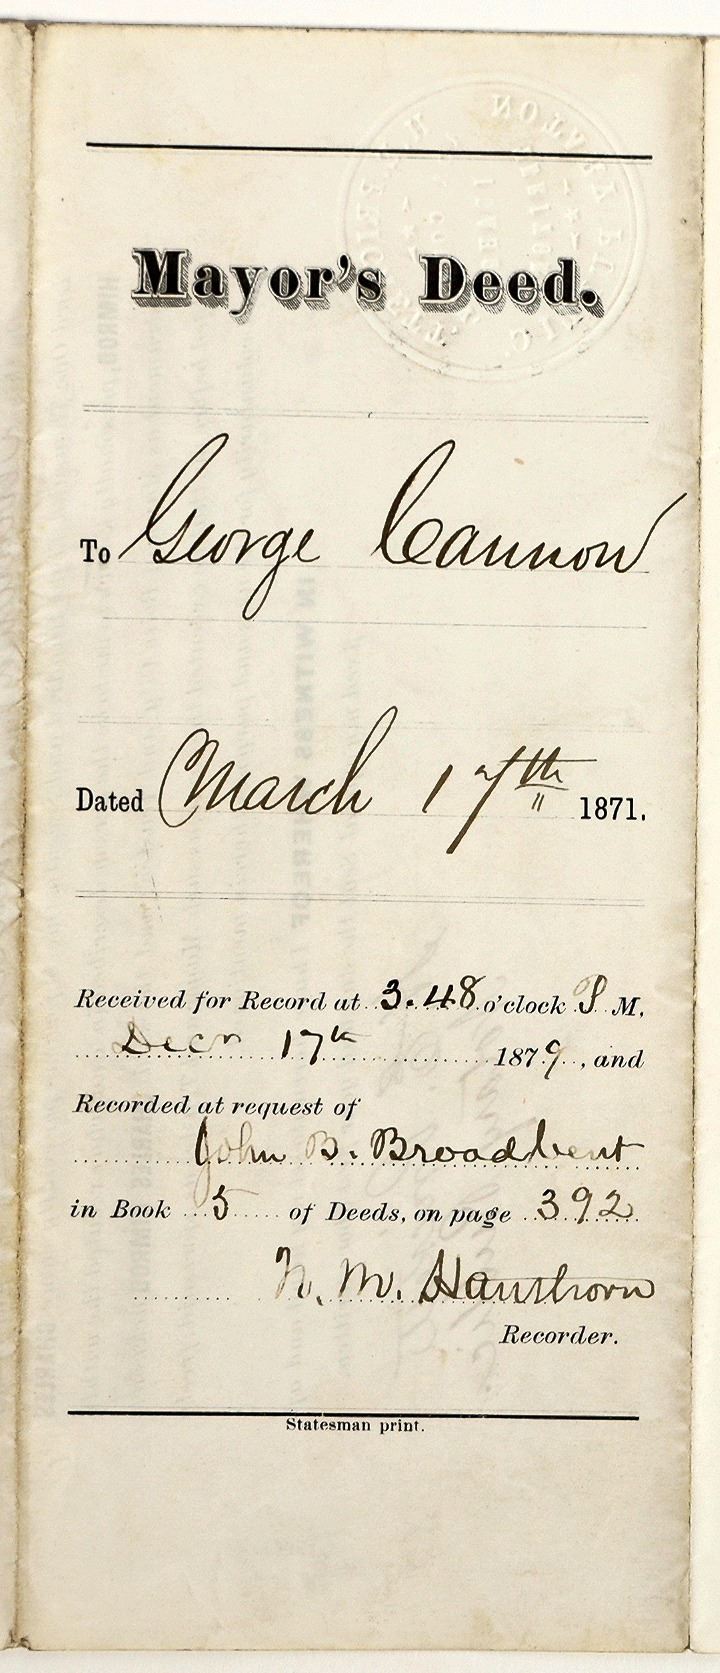 Mayor's Deed.
To George Cannon
Dated March 17th 1871.
Received for Record at 3.48 o'clock P M,
Decr 17th 1879, and
Recorded at request of
John B. Broadbent
in Book 5 of Deeds, on page 392
N. M. Hawthorn
Recorder.
Statesman print.